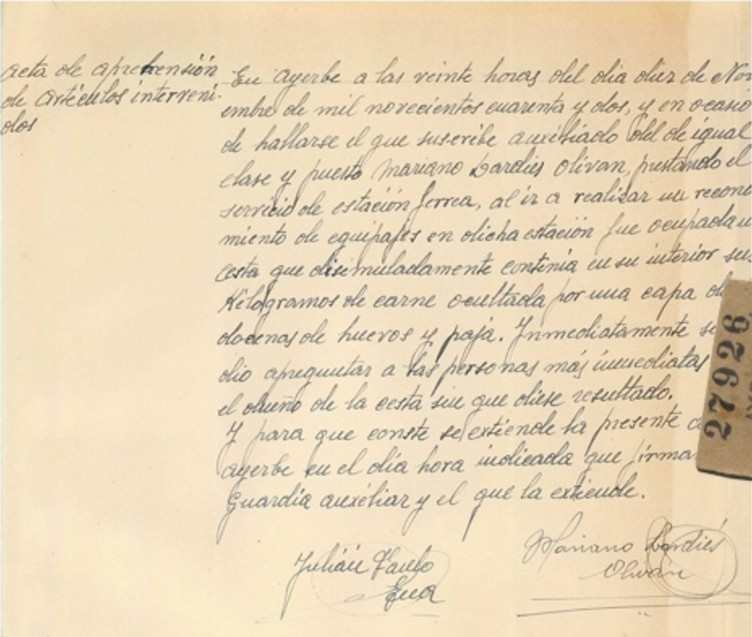 Acta de aprehensión
de artículos interveni-
dos
En Ayerbe a las veinte horas del dia diez de Nov
embre de mil novecientos cuarenta y dos, y en ocasió
de hallarse el que suscribe auxiliado del de igual
clase y puesto Mariano Bardies Olivan, prestando el
servicio de estación ferrea, al ir a realizar un recono
miento de equipajes en dicha estación fue ocupada u
cesta que disimuladamente contenia en su interior
Kilogramos de carne ocultada por una capa de
docenas de huevos y paja. Inmediatamente se
dio apreguntar a las personas más inmediatas
el dueño de la cesta sin que diese resultado.
Y para que conste se extiende la presente
Ayerbe en el día hora indicada que firma
Guardia auxiliar y el que la extiende.
27926
Julián
Mariano Bardiés
Olivan